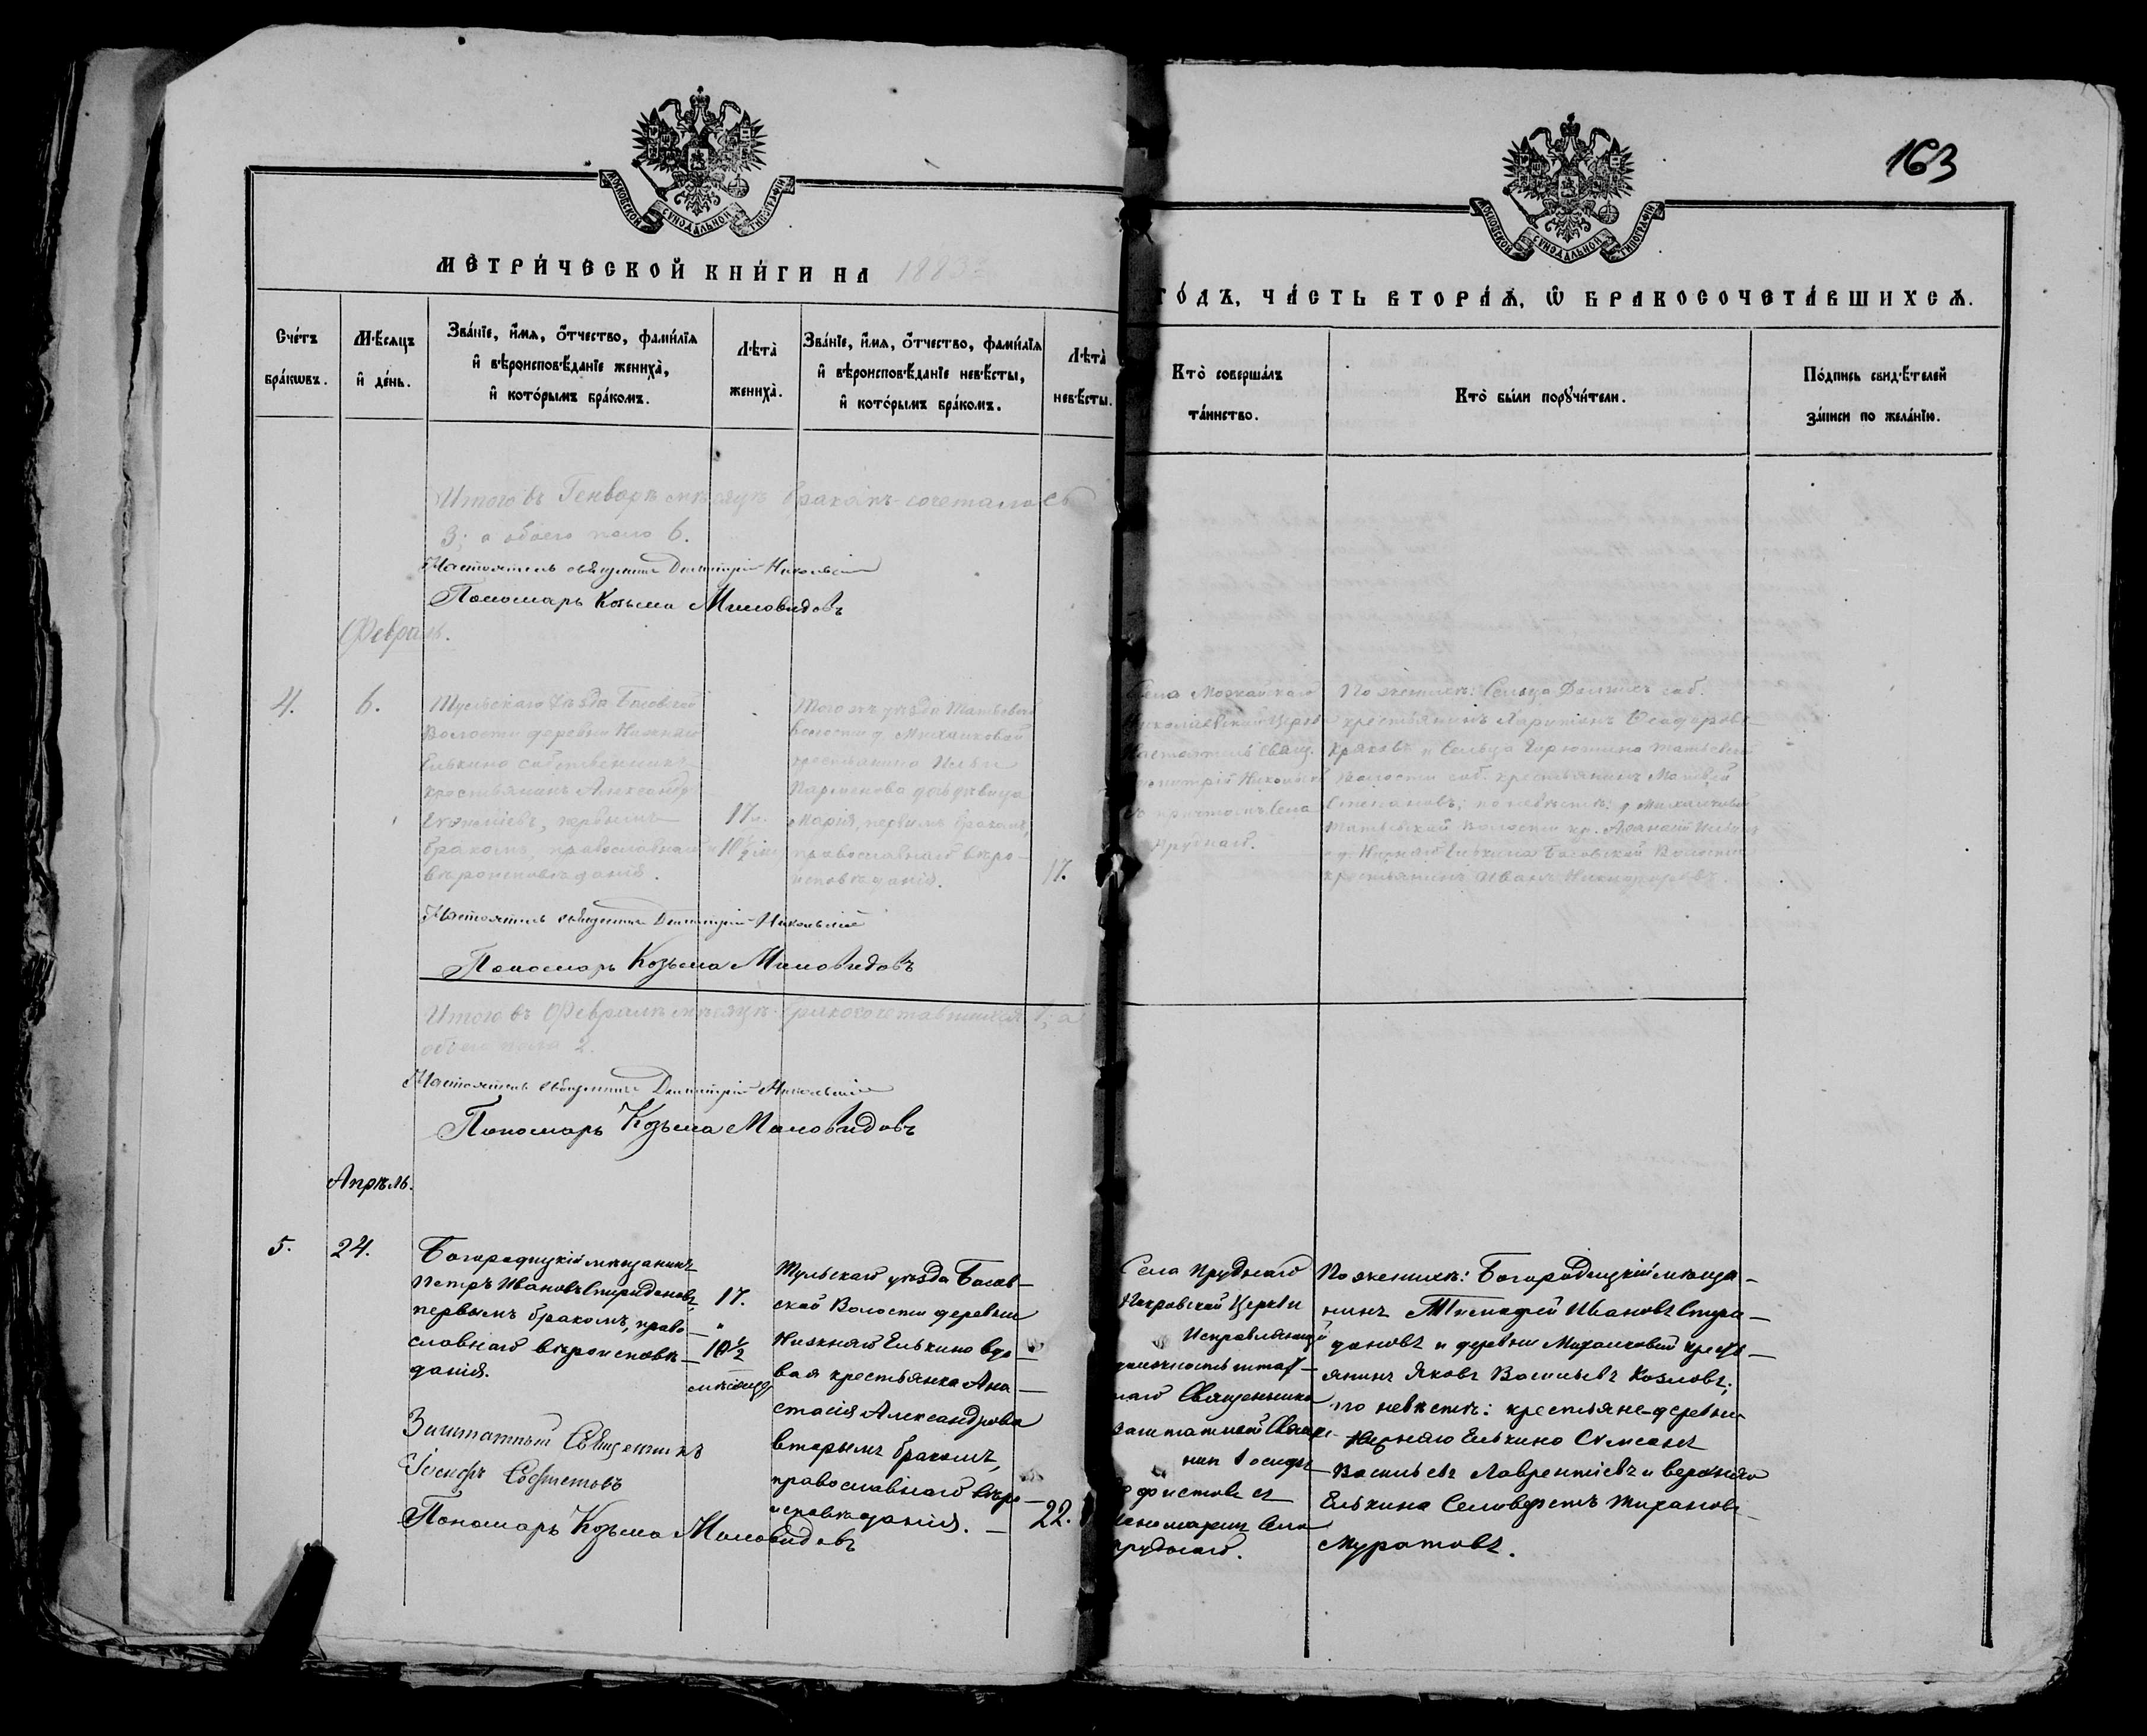 163
МОСКОВСКОЙ СѴНОДАЛЬНОЙ ТИПОГРАФІИ
МОСКОВСКОЙ СѴНОДАЛЬНОЙ ТИПОГРАФІИ
МЕТРИ́ЧЕСКОЙ КНИ́ГИ НА 1883
ГО́ДЪ, ЧА́СТЬ ВТОРА́Ѧ, Ѡ҆ БРАКОСОЧЕТА́ВШИХСѦ.
Сче́тъ
бра́кѡвъ.
Мѣ́сяцъ
и҆ де́нь.
Зва́нїе, и҆́мя, ѻ҆́тчество, фами́лїя
и҆ вѣроисповѣ́данїе жениха̀,
и҆ кото́рымъ бра́комъ.
Лѣта̀
жениха̀.
Зва́нїе, и҆́мя, ѻ҆́тчество, фами́лїя
и҆ вѣроисповѣ́данїе невѣ́сты,
и҆ кото́рымъ бра́комъ.
Лѣта̀
невѣ́сты.
Кто̀ соверша́лъ
та́инство.
Кто̀ бы́ли порꙋчи́тели.
По́дпись свидѣ́телей
за́писи по жела́нїю.
Итого въ Генварѣ мѣсяцѣ бракомъ сочеталось
3; а обоего пола 6.
Настоятель священникъ Димитрій Никольскій
Пономарь Козьма Миловидовъ
Февраль.
4.
6.
Тульскаго уѣзда Басовской
Волости деревни Нижняго
Елькина собственникъ
крестьянинъ Александръ
первымъ
бракомъ, православнаго
вѣроисповѣданія.
17.
10½
Того же уѣзда
волости д. Михалковой
крестьянина Ильи
Парменова дочь дѣвица
Марія, первымъ бракомъ,
православнаго вѣро-
исповѣданія.
17.
Села Можайскаго
Николаевской Церкви
Настоятель Свящ.
Димитрій Никольскій
съ причтомъ Села
Пруднаго.
По женихѣ: Сельца соб.
крестьянинъ Харитонъ Ѳеодоровъ
и Сельца
Волости соб. крестьянинъ Матвѣй
Степановъ; по невѣстѣ: д. Михалковой
Волости кр.
и д. Нижняго Елькина Басовской Волости
крестьянинъ Иванъ Никифоровъ.
Настоятель священникъ Димитрій Никольскій
Пономарь Козьма Миловидовъ
Итого въ Февралѣ мѣсяцѣ бракосочетавшихся 1; а
обоего пола 2.
Настоятель священникъ Димитрій Никольскій
Пономарь Козьма Миловидовъ
Апрѣль.
5.
24.
Богородицкій мѣщанинъ
Петръ Ивановъ Спиридоновъ
первымъ бракомъ, право-
славнаго вѣроисповѣ-
данія.
17.
10½
мѣсяц
Тульскаго уѣзда Басов-
ской Волости деревни
Нижняго Елькино вдо-
вая крестьянка Ана-
стасія Александрова
вторымъ бракомъ,
православнаго вѣро-
исповѣданія.
22.
Села Пруднаго
Покровской Церкви
Исправляющій
должность штат-
наго Священника
заштатный Священ-
никъ Іосифъ
съ
Пономаремъ Села
Пруднаго.
По женихѣ: Богородицкій мѣща-
нинъ Тимофей Ивановъ Спири-
доновъ и деревни Михалковой крест-
янинъ Яковъ Васильевъ Козловъ;
по невѣстѣ: крестьяне деревни
Нижняго Елькино Симеонъ
Васильевъ Лаврентіевъ и верхняго
Елькина Селиверстъ Тихоновъ
Муратовъ.
Заштатный Священникъ
Іосифъ
Пономарь Козьма Миловидовъ